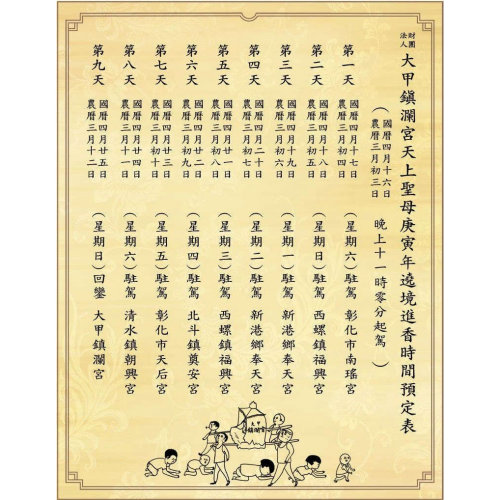 財團
法人
大甲鎮瀾宮天上聖母庚寅年遶境進香時間預定表
(國曆四月十六日
農曆三月初三日
晚上十一時零分起駕)
第一天
國曆四月十七日
農曆三月初四日
(星期六)駐駕 彰化市南瑤宮
第二天
國曆四月十八日
農曆三月初五日
(星期日)駐駕 西螺鎮福興宮
第三天
國曆四月十九日
農曆三月初六日
(星期一)駐駕 新港鄉奉天宮
第四天
國曆四月二十日
農曆三月初七日
(星期二)駐駕 新港鄉奉天宮
第五天
國曆四月廿一日
農曆三月初八日
(星期三)駐駕 西螺鎮福興宮
第六天
國曆四月廿二日
農曆三月初九日
(星期四)駐駕 北斗鎮奠安宮
第七天
國曆四月廿三日
農曆三月初十日
(星期五)駐駕 彰化市天后宮
第八天
國曆四月廿四日
農曆三月十一日
(星期六)駐駕 清水鎮朝興宮
第九天
國曆四月廿五日
農曆三月十二日
(星期日)回鑾 大甲鎮瀾宮
大甲
鎮瀾宮